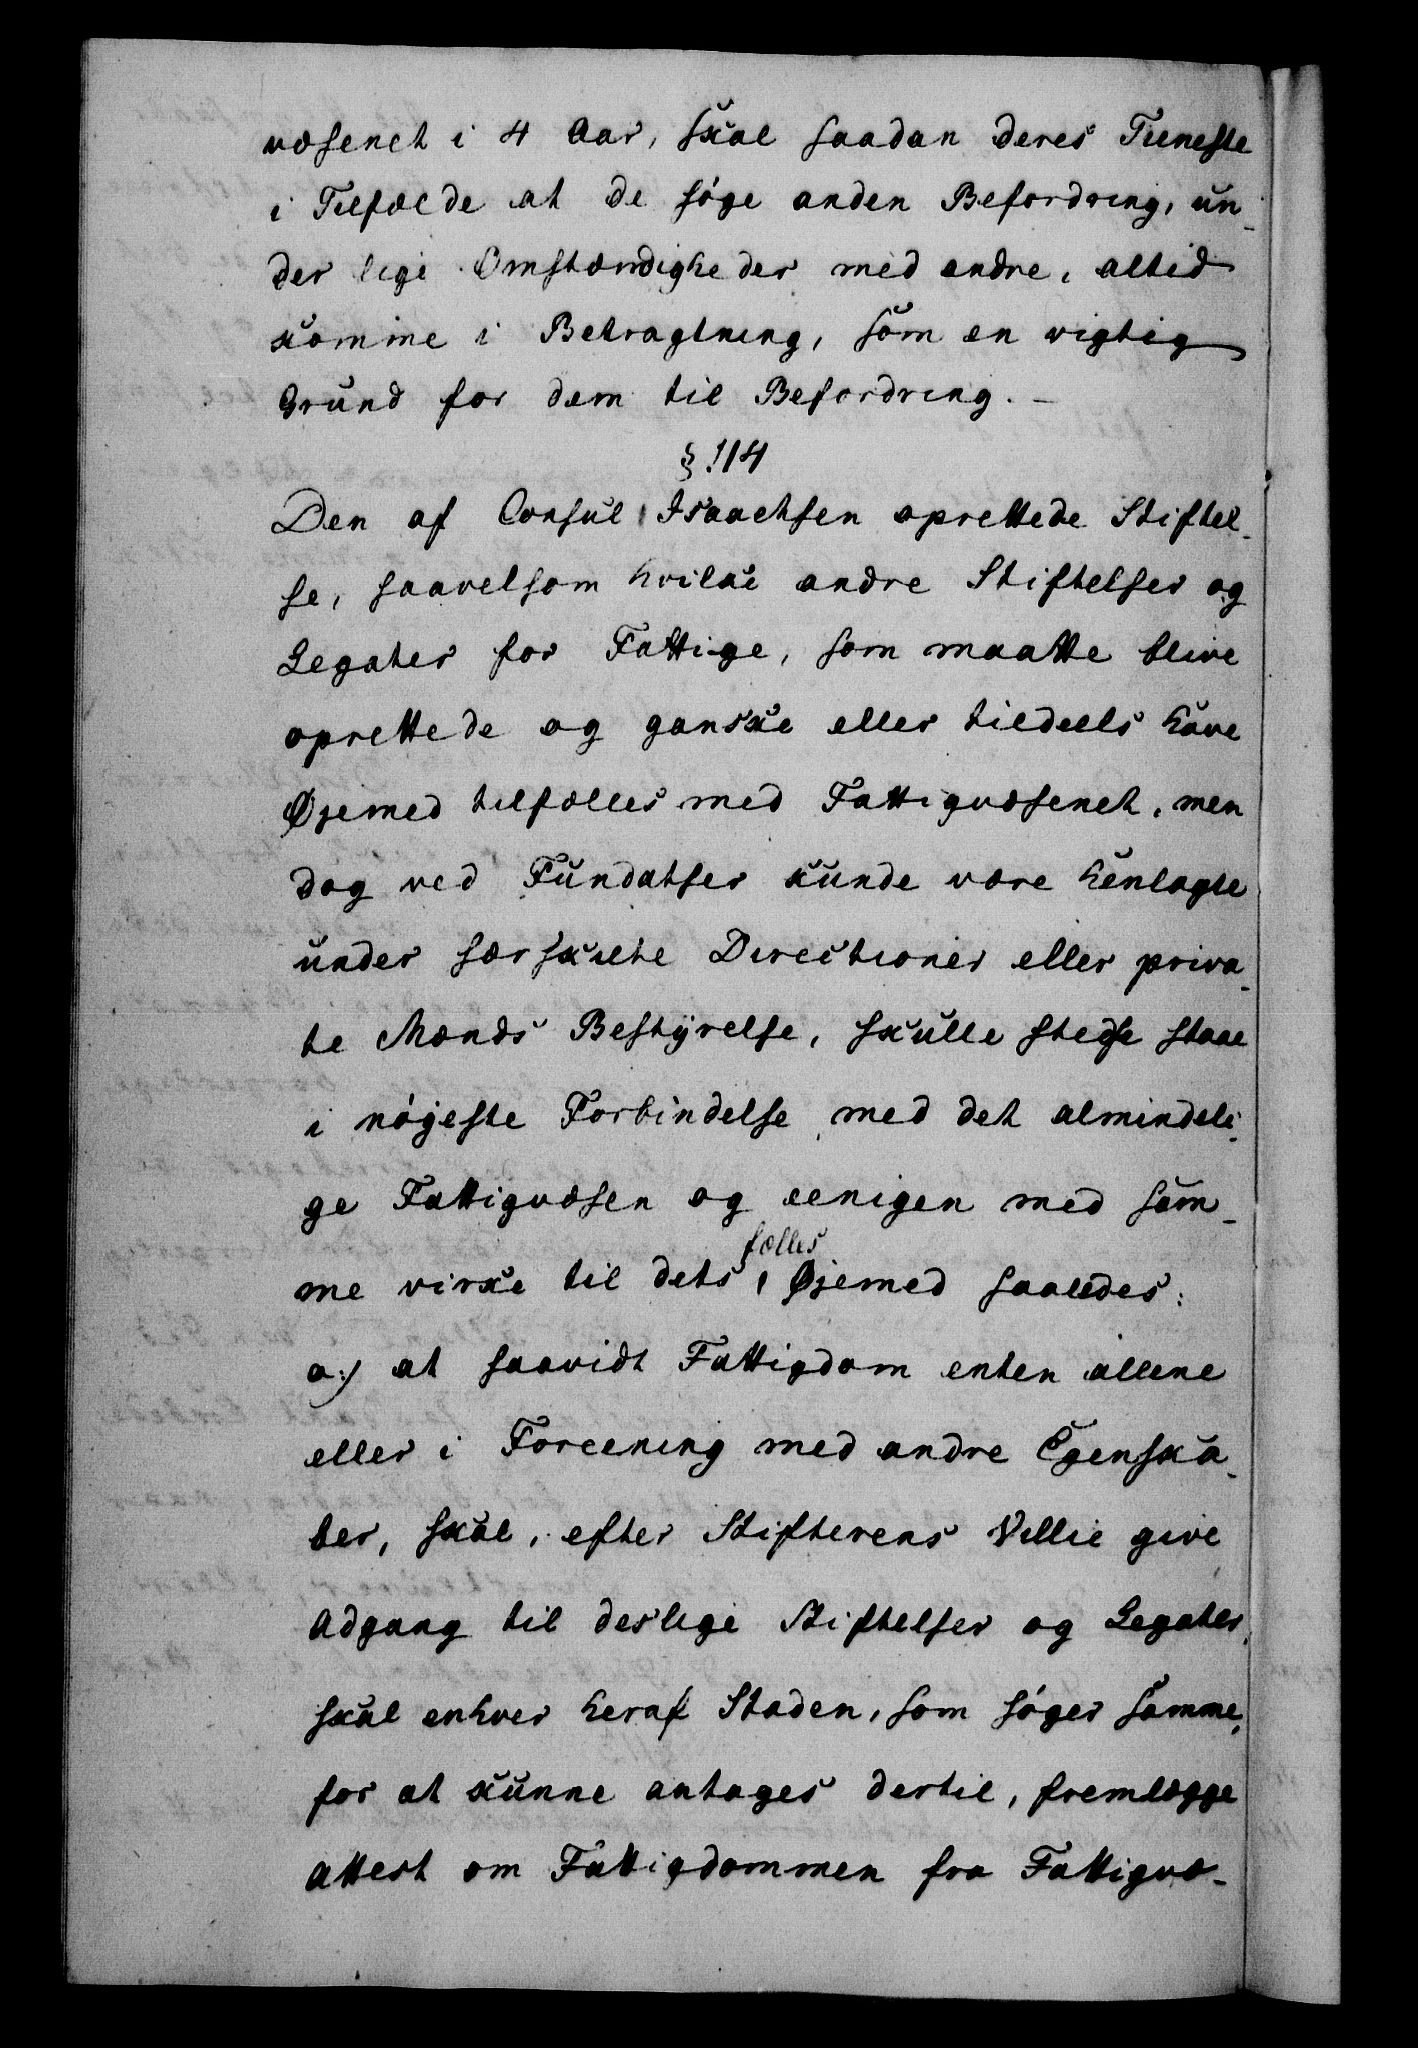 væsenet i 4 Aar, skal saadan deres Tieneste
i Tilfælde at de søge anden Befordring, un-
der lige Omstændigheder med andre, altid
komme i Betragtning, som en vigtig
Grund for dem til Befordring. -
§. 114
Den af Consul Isaachsen oprettede Stiftel-
se, saavelsom hvilke andre Stiftelser og
Legater for Fattige, som maatte blive
oprettede og ganske eller tildeels have
Øjemed tilfælles med Fattigvæsenet, men
dog ved Fundatser kunde være henlagte
under særskilte Directioner eller priva-
te Mænds Bestyrelse, skulle stedse staae
i nøjeste Forbindelse med det almindeli-
ge Fattigvæsen og eenigen med sam-
fælles
me virke til dets Øjemed saaledes:
a:) at saavidt Fattigdom enten allene
eller i Foreening med andre Egenska-
ber, skal, efter Stifterens Villie give
Adgang til deslige Stiftelser og Legater,
skal enhver heraf Staden, som søger samme,
for at kunne antages dertil, fremlægge
Attest om Fattigdommen fra Fattigvæ-